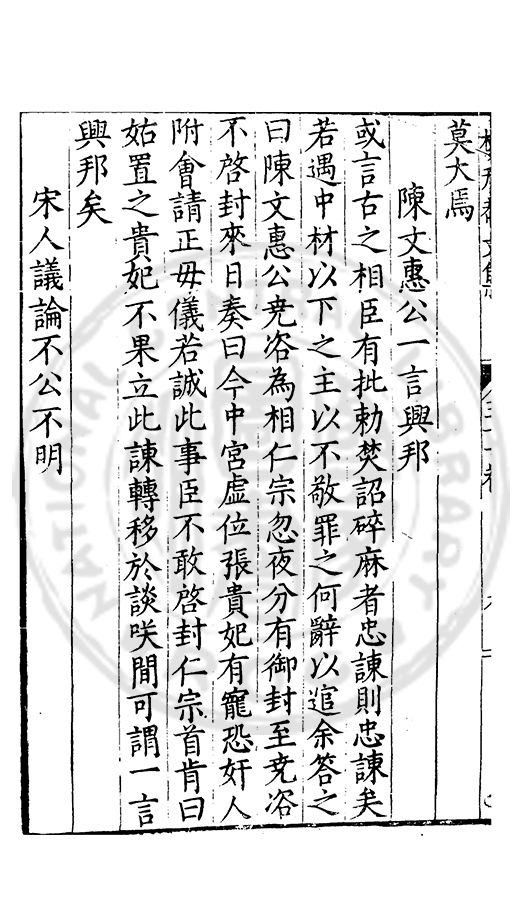 莫大焉
陳文惠公一言興邦
或言古之相臣有批勅焚詔碎麻者忠諫則忠諫矣
若遇中材以下之主以不敬罪之何辭以逭余答之
曰陳文惠公尭咨為相仁宗忽夜分有御封至尭咨
不啓封來日奏曰今中宮虛位張貴妃有寵恐奸人
附會請正毋儀若誠此事臣不敢啓封仁宗首肯曰
姑置之貴妃不果立此諫轉移於談咲間可謂一言
興邦矣
宋人議論不公不明